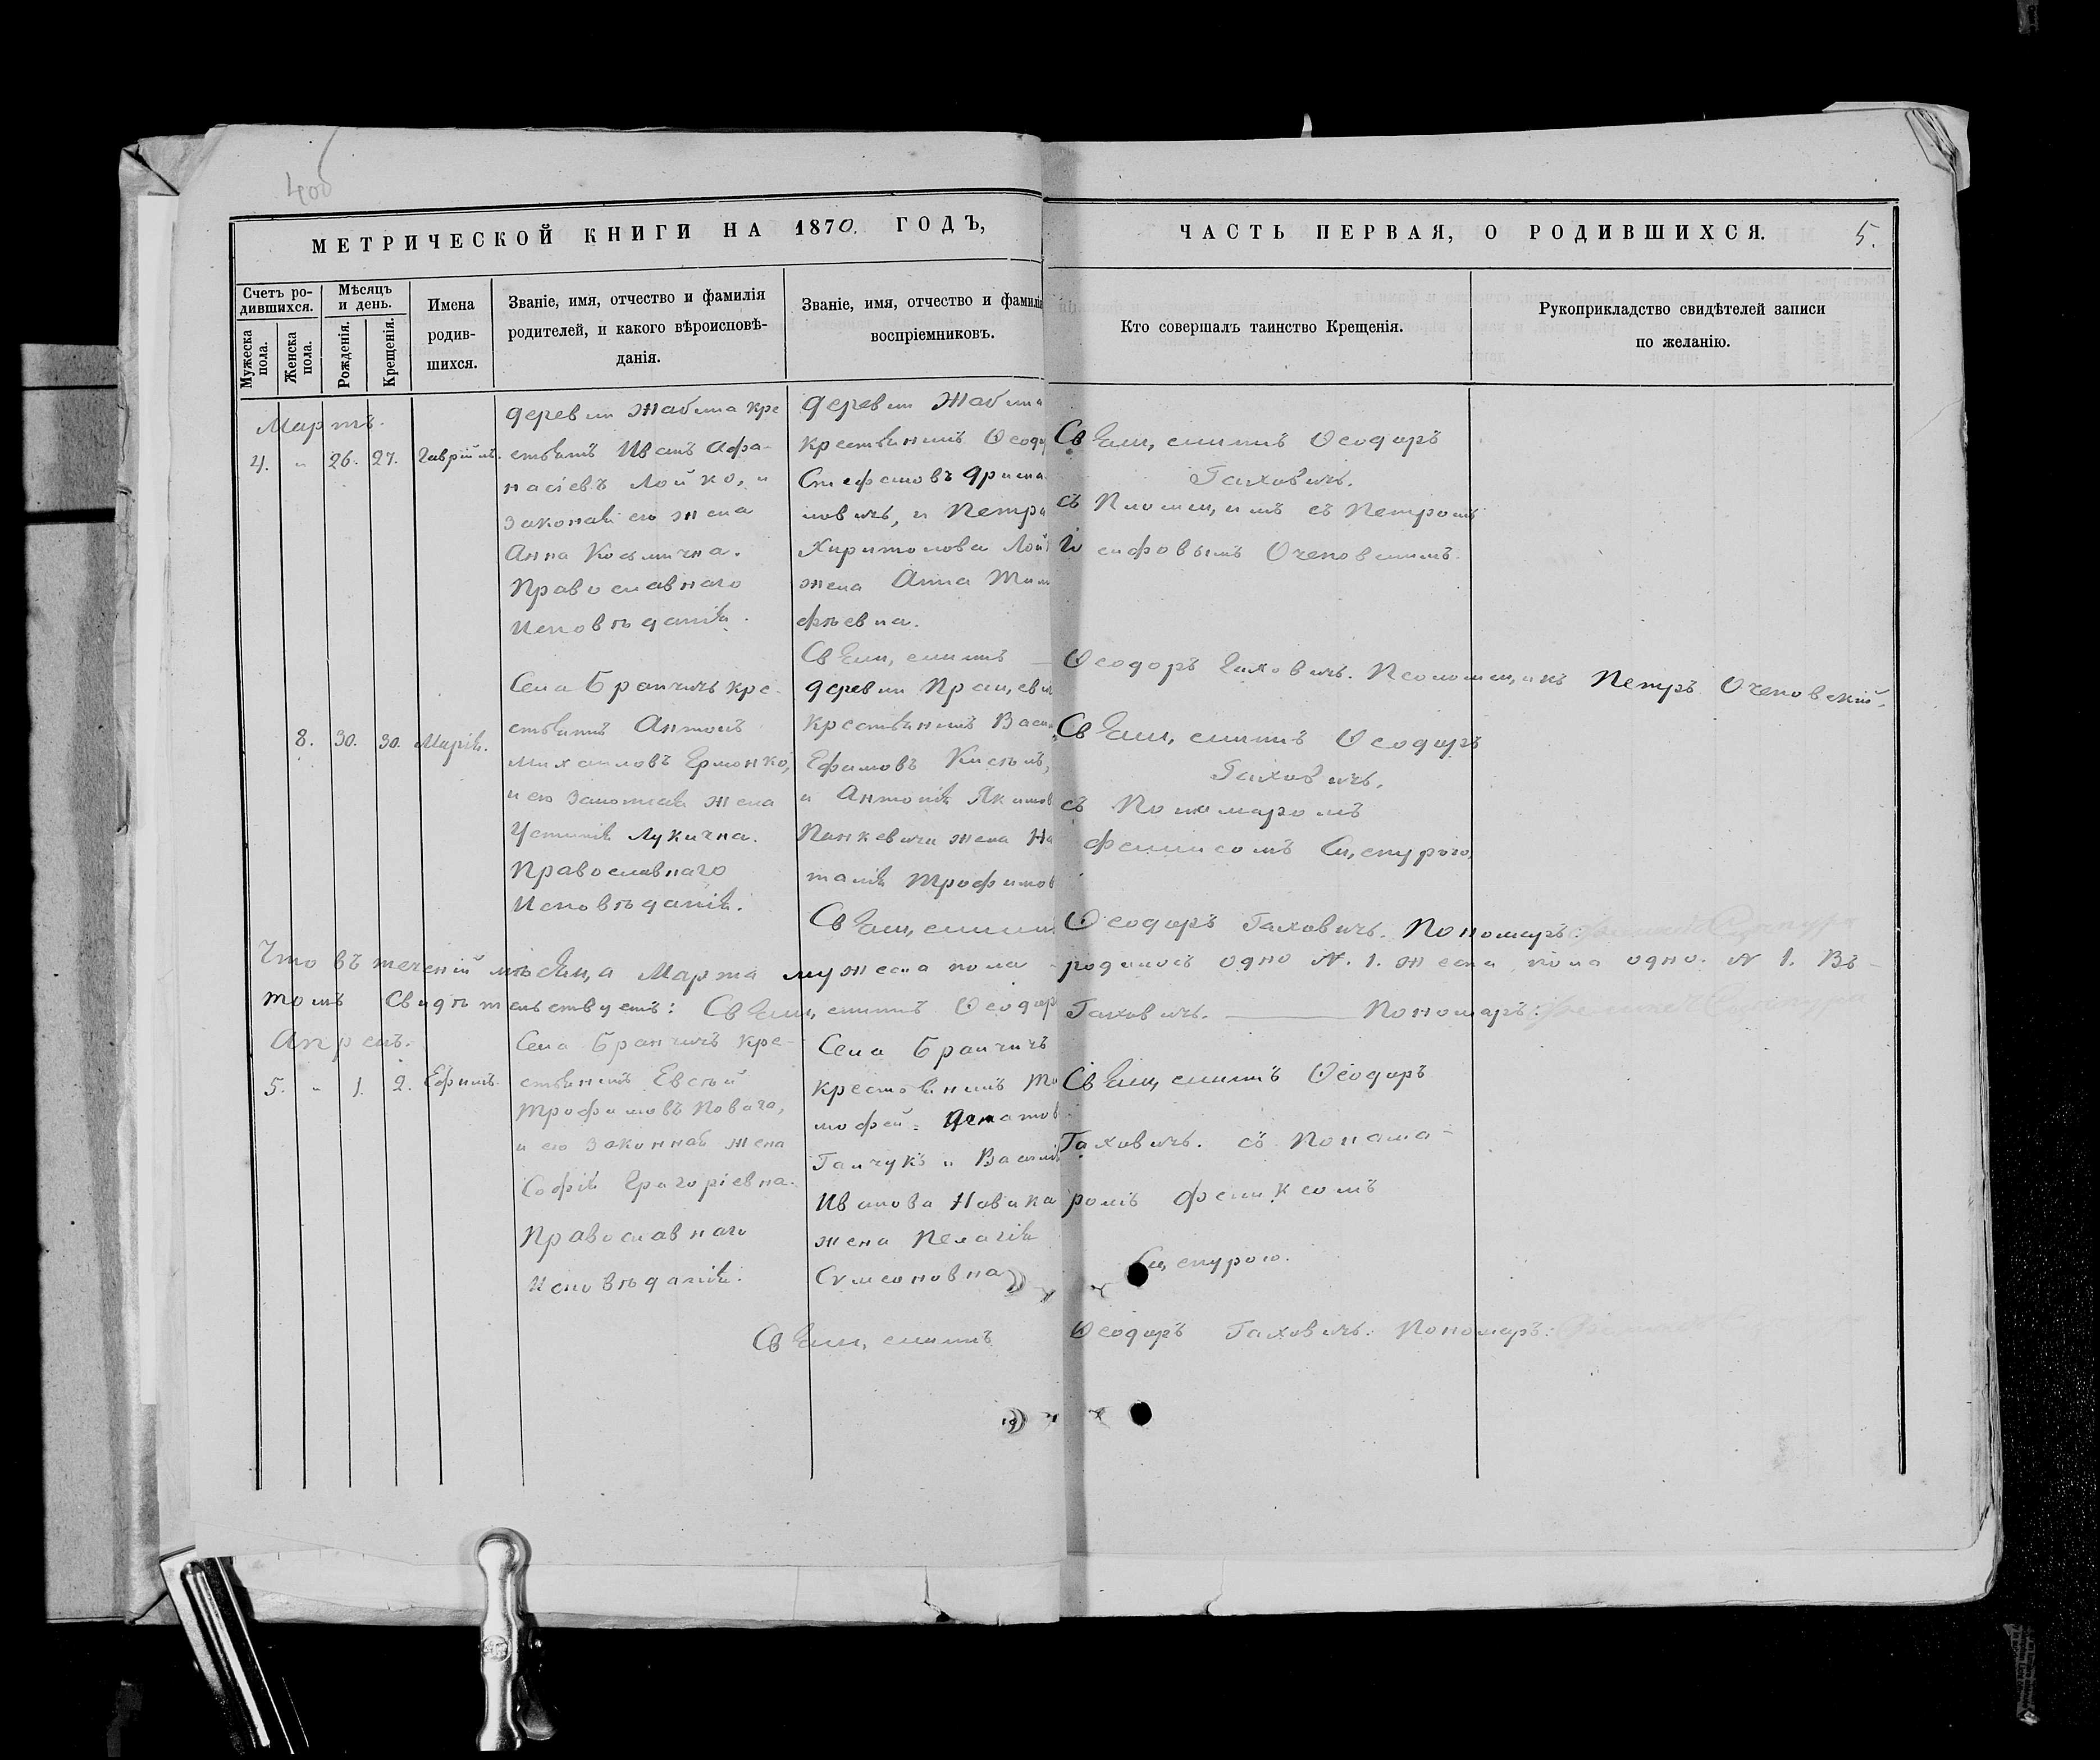 МЕТРИЧЕСКОЙ КНИГИ НА 1870. ГОДЪ,
ЧАСТЬ ПЕРВАЯ, О РОДИВШИХСЯ.
5.
Счетъ ро-
дившихся.
Мужеска
пола.
Женска
пола.
Мѣсяцъ
и день.
Рожденія.
Крещенія.
Имена
родив-
шихся.
Званіе, имя, отчество и фамилія
родителей, и какого вѣроисповѣ-
данія.
Званіе, имя, отчество и фамилія
воспріемниковъ.
Кто совершалъ таинство Крещенія.
Рукоприкладство свидѣтелей записи
по желанію.
Мартъ.
4. " 26. 27. Гавріилъ.
деревни Жабина кре
стьянинъ Иванъ Афа-
насіевъ Лойко, и
законная его жена
Анна Косьмична.
Православнаго
Исповѣданія.
деревни Жабина
крестьянинъ Ѳеодо
Стефановъ
и Петра
Харитонова Лой
жена Анна Тим
фѣевна.
Священникъ Ѳеодоръ
Гаховичъ.
съ Псаломщикомъ Петромъ
Іосифовымъ Очеповскимъ.
Священникъ — Ѳеодоръ Гаховичъ. Псаломщикъ Петръ Очеповскій.
8. 30. 30. Марія.
Села Бранчичъ кре-
стьянинъ Антонъ
Михаиловъ Ермонко,
и его законная жена
Устинія Лукична.
Православнаго
Исповѣданія.
деревни Працеви
крестьянинъ Васи
Ефимовъ Кисель,
и Антонія Якимов
Панкевича жена На
талія Трофимов
Священникъ Ѳеодоръ
Гаховичъ.
съ Пономаромъ
Феликсомъ Сцепурою,
Священникъ Ѳеодоръ Гаховичъ. Пономаръ:
Что въ теченіи мѣсяца Марта мужеска пола родилось одно № 1. женска пола одно. № 1. Въ
томъ свидѣтельствуетъ: Священникъ Ѳеодоръ Гаховичъ. — Пономаръ:
Апрель.
5. " 1. 2. Ефимъ.
Села Бранчичъ кре-
стьянинъ Евсѣй
Трофимовъ
и его законная жена
Софія Григоріевна.
Православнаго
Исповѣданія.
Села Бранчичъ
крестьянинъ Ти
мофей Игнатов
Ганчукъ и Василія
Иванова Новика
жена Пелагія
Сѵмеоновна
Священникъ Ѳеодоръ
Гаховичъ. съ Понома-
ромъ Феликсомъ
Сцепурою.
Священникъ Ѳеодоръ Гаховичъ. Пономаръ: